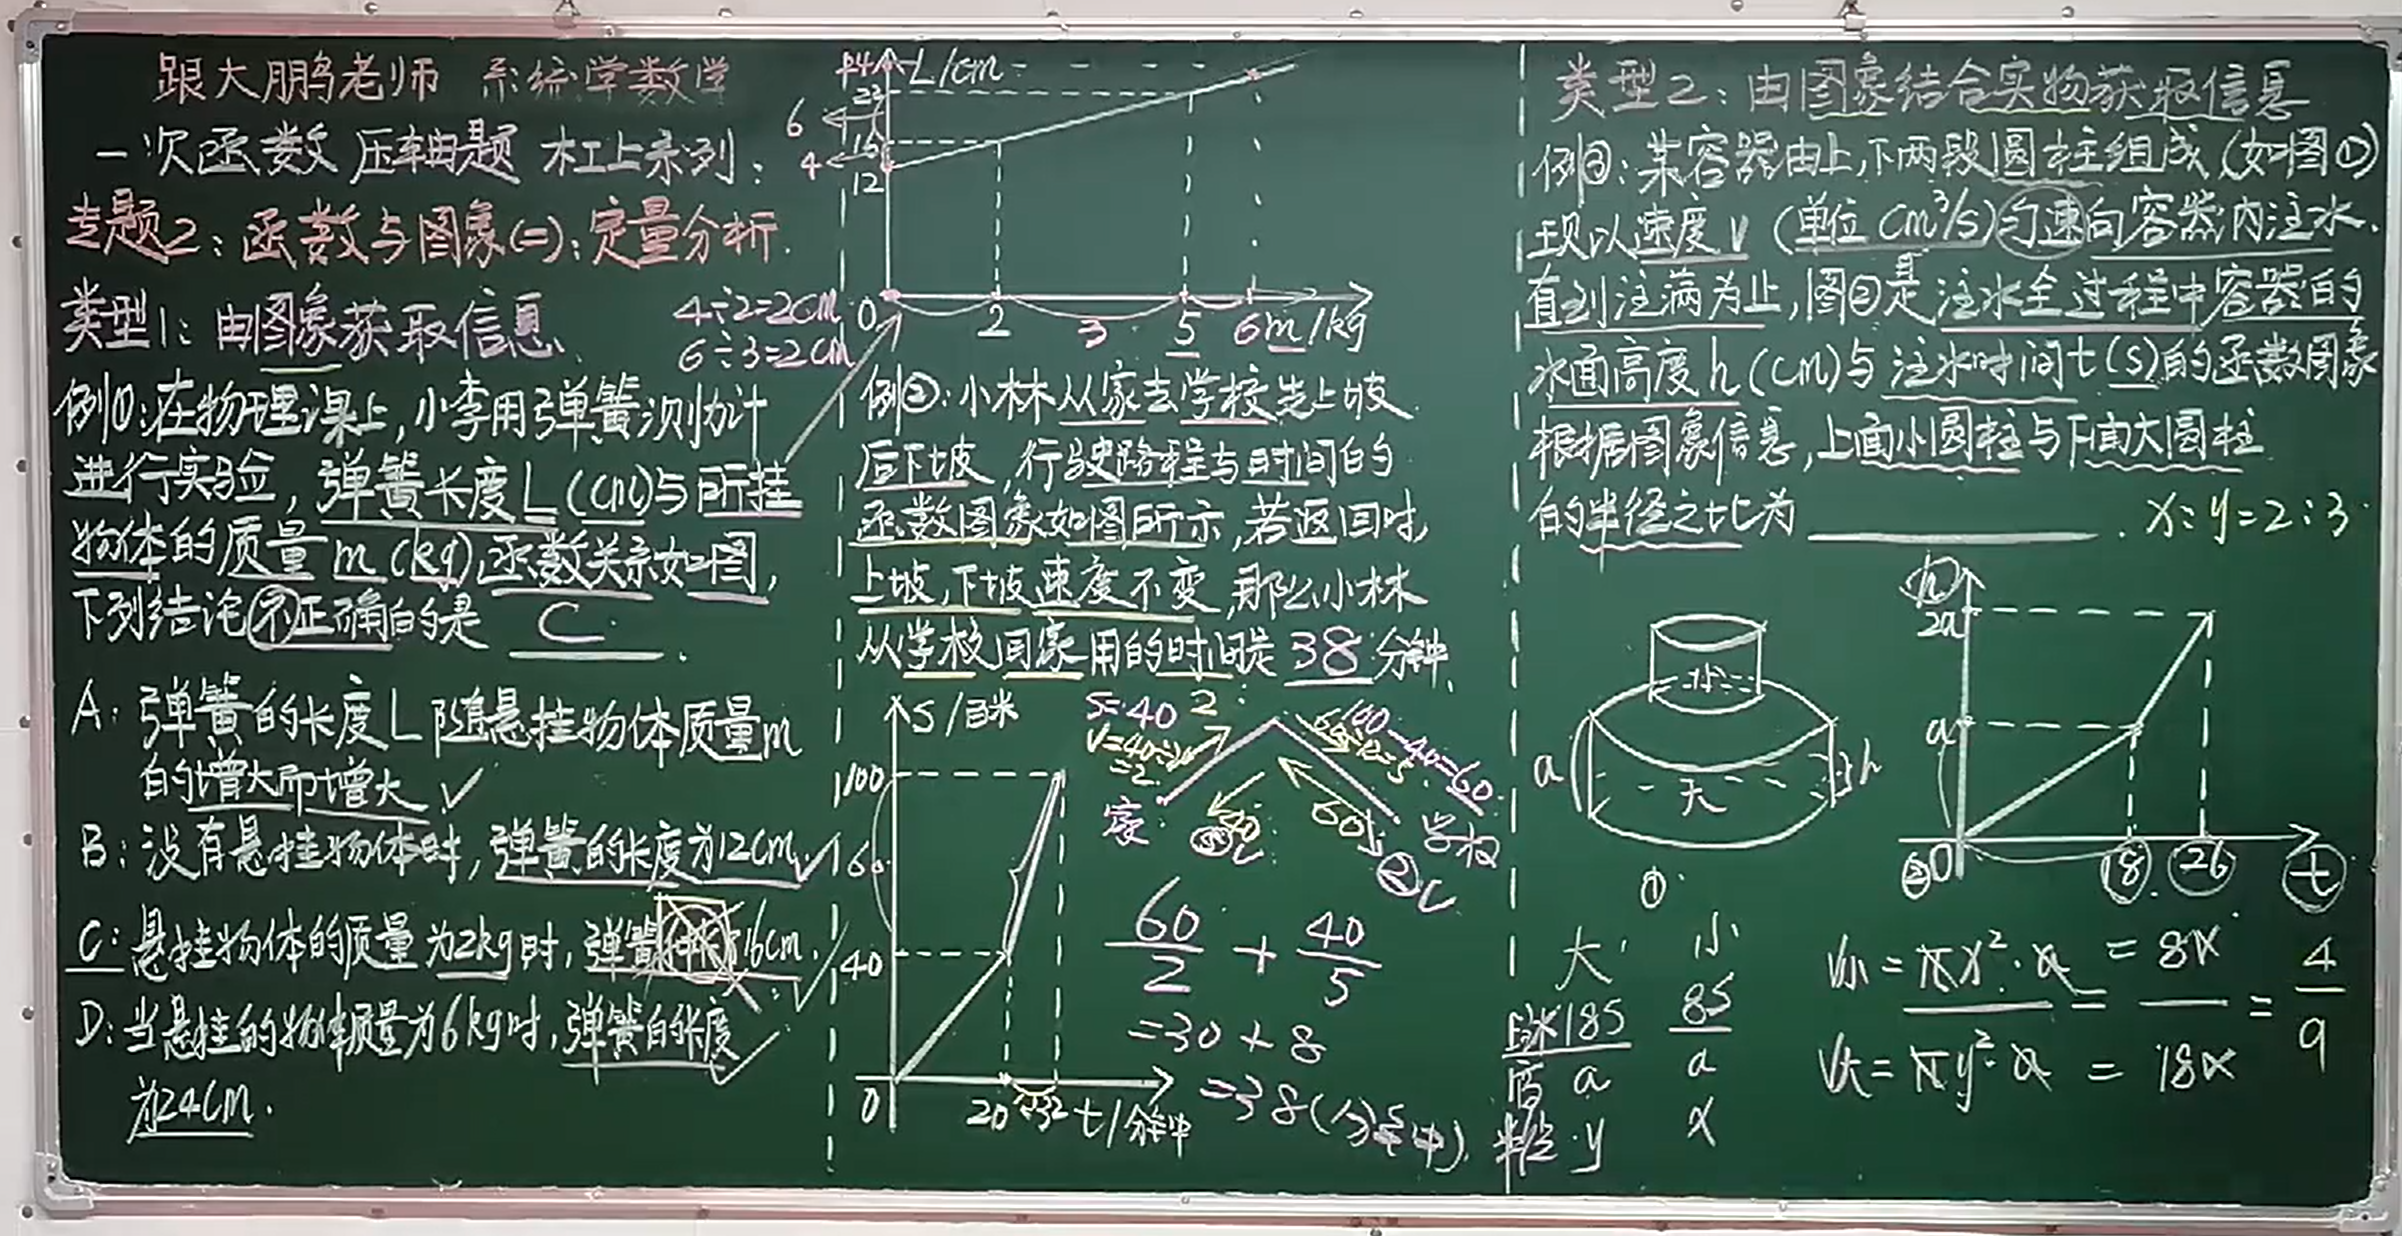 跟大鹏老师 系统学数学
一次函数压轴题 杠上系列:
专题2:函数与图象(二):定量分析.
类型1:由图象获取信息.
例①:在物理课上,小李用弹簧测力计
进行实验,弹簧长度L(cm)与所挂
物体的质量m(kg)函数关系如图,
下列结论不正确的是 C .
A:弹簧的长度L随悬挂物体质量m
的增大而增大 ✓
B:没有悬挂物体时,弹簧的长度为12cm. ✓
C:悬挂物体的质量为2kg时,弹簧伸长16cm.
D:当悬挂的物体质量为6kg时,弹簧的长度
为24cm. ✓
4÷2=2cm
6÷3=2cm
L/cm
24
22
16
12
6
4
0 2 3 5 6 m/kg
例②:小林从家去学校先上坡
后下坡,行驶路程与时间的
函数图象如图所示,若返回时,
上坡,下坡速度不变,那么小林
从学校回家用的时间是 38 分钟.
S/百米
100
60
40
0 20 32 t/分钟
S=40
2
V=40÷20
=2
100-40=60
60÷12=5
家
40
60
学校
⑤
②
60/2 + 40/5
=30+8
=38(分钟).
类型2:由图象结合实物获取信息
例③:某容器由上,下两段圆柱组成(如图①)
现以速度V(单位cm³/s)匀速向容器内注水.
直到注满为止,图②是注水全过程中容器的
水面高度h(cm)与注水时间t(s)的函数图象
根据图象信息,上面小圆柱与下面大圆柱
的半径之比为 . x:y=2:3.
小
大
a
h
①
h
2a
a
②
0 18 26 t
大 小
18S 8S
高 a a
半径 y x
V小=πx²·a = 8x = 4
V大=πy²·a = 18x 9